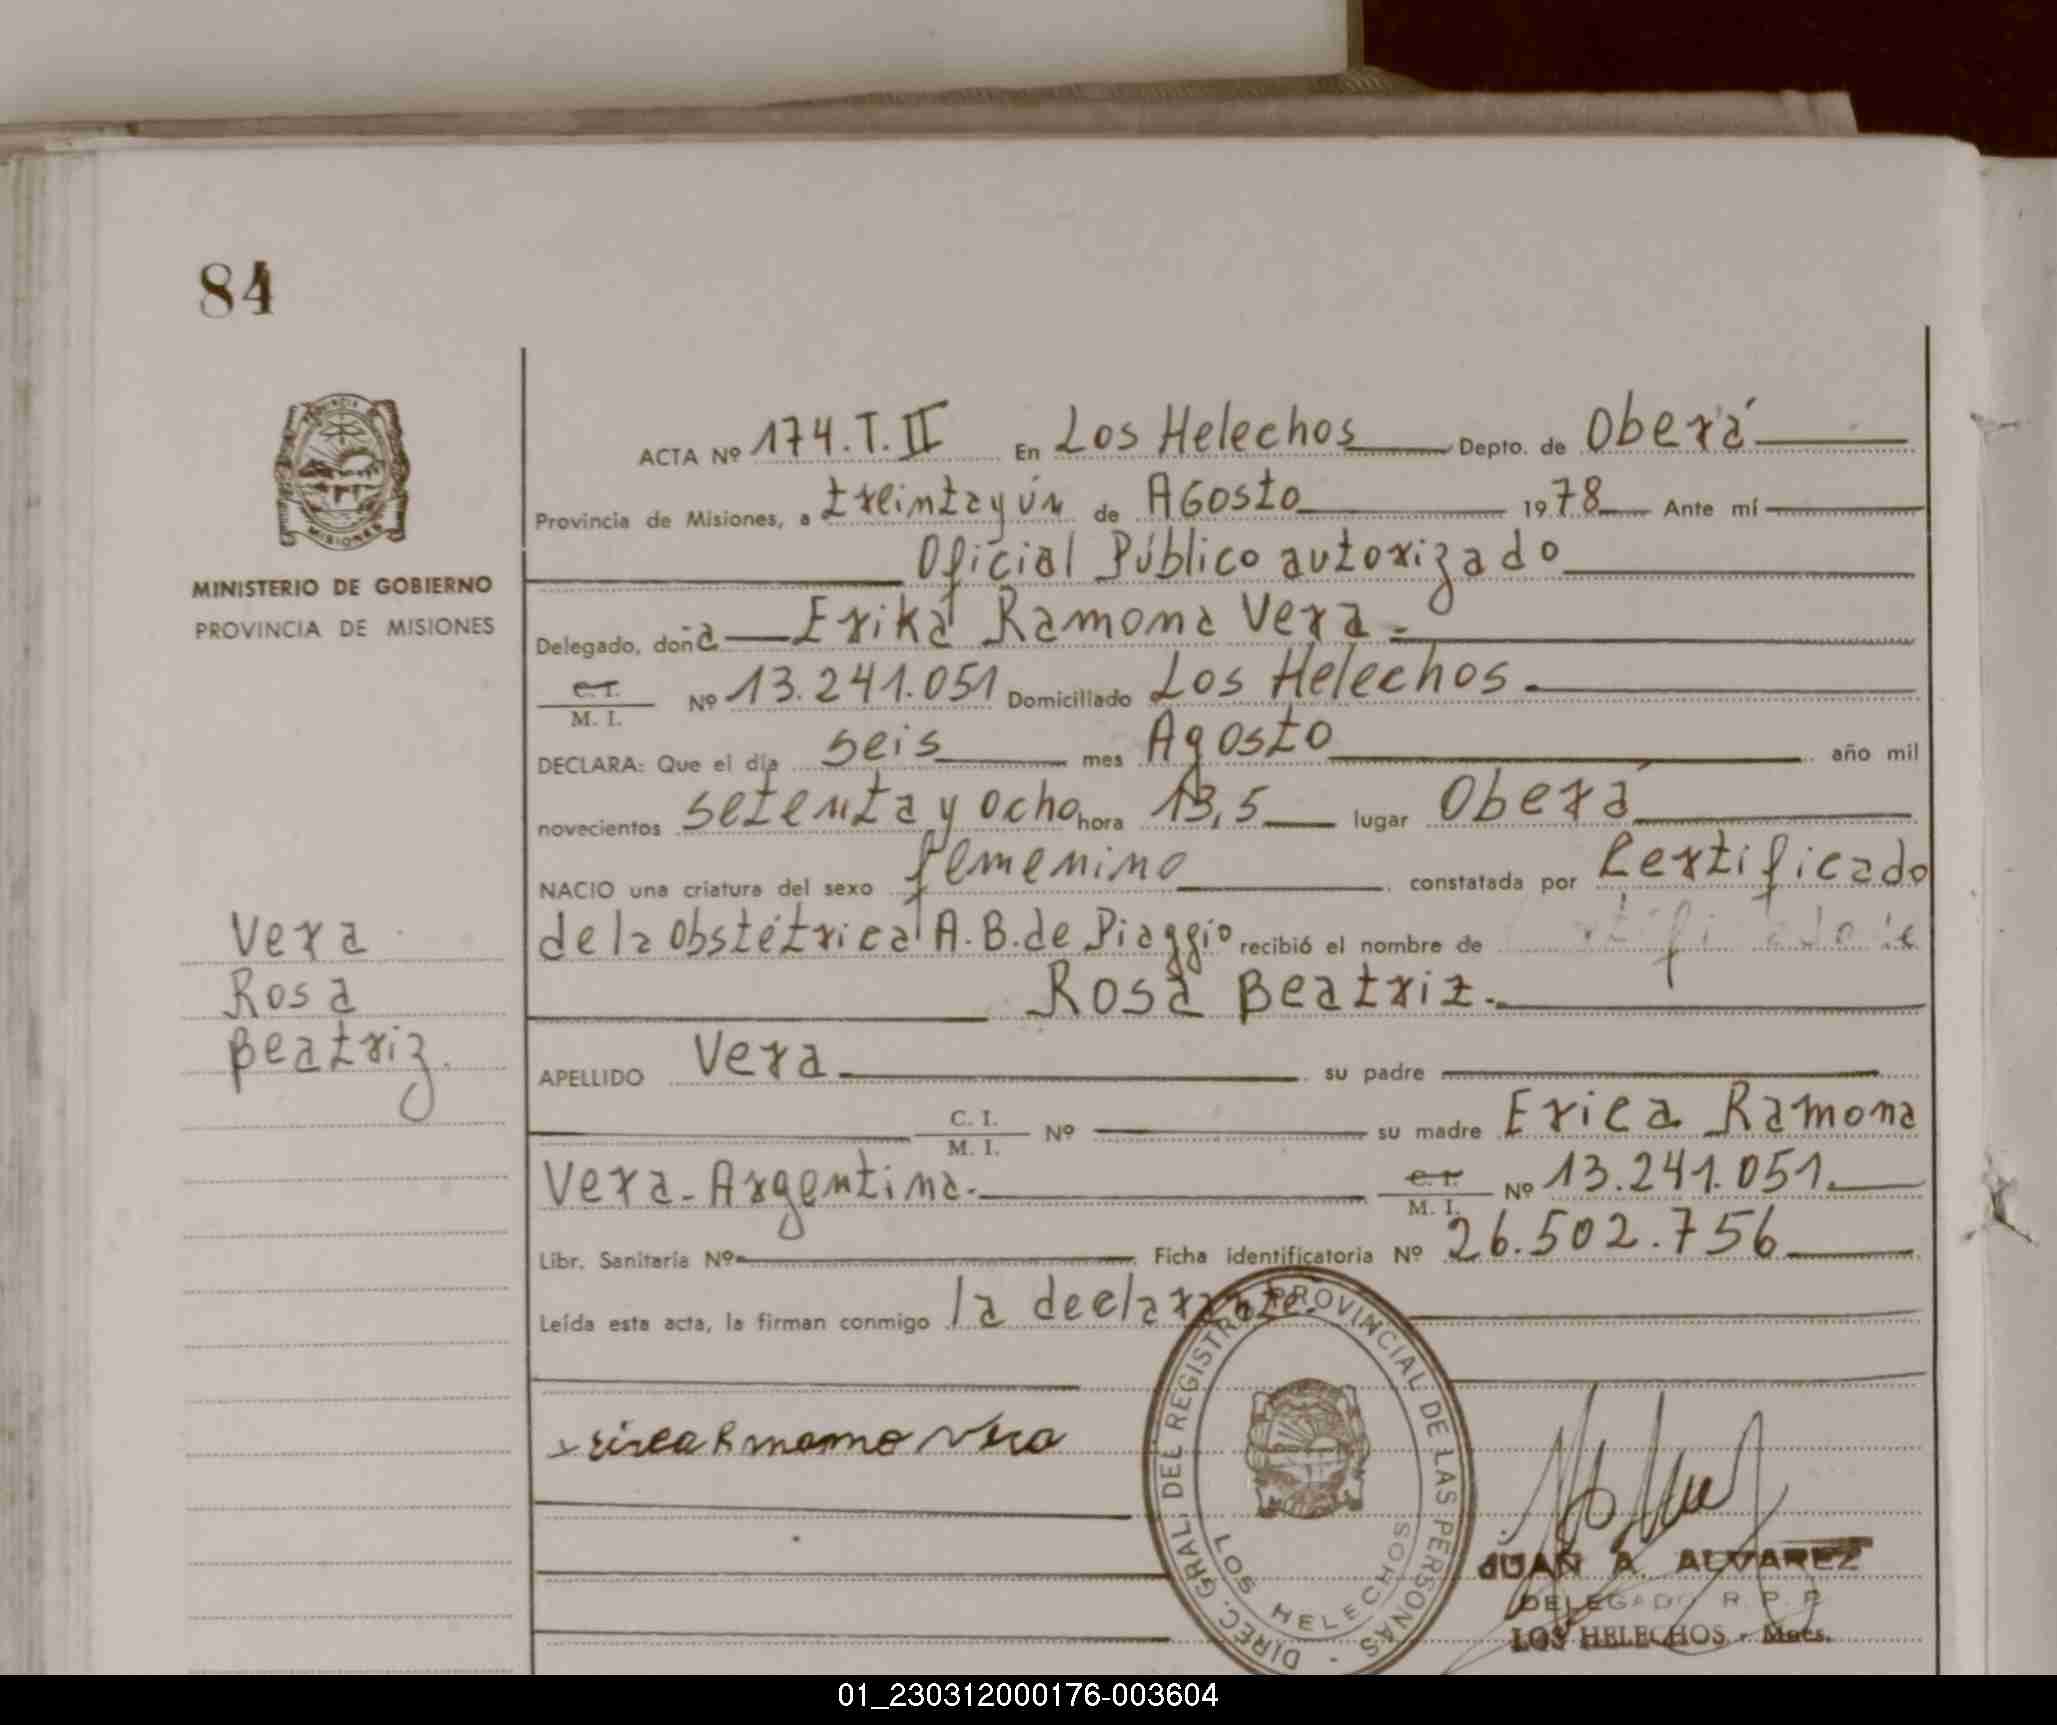 84
PROVINCIA DE
MISIONES
MINISTERIO DE GOBIERNO
PROVINCIA DE MISIONES
Vera
Rosa
Beatriz.
ACTA Nº 174.T.II En Los Helechos Depto. de Oberá
Provincia de Misiones, a treintayún de Agosto 1978 Ante mí
Oficial Público autorizado
Delegado, doña Erika Ramona Vera.-
C.I. / M. I. Nº 13.241.051 Domiciliado Los Helechos.
DECLARA: Que el día seis mes Agosto año mil
novecientos setenta y ocho hora 13,5 lugar Oberá
NACIO una criatura del sexo femenino constatada por Certificado
de la obstétrica A.B. de Piaggio recibió el nombre de
Rosa Beatriz.-
APELLIDO Vera su padre
C. I. / M. I. Nº su madre Erica Ramona
Vera-Argentina.- C.I. / M. I. Nº 13.241.051.
Libr. Sanitaria Nº Ficha identificatoria Nº 26.502.756
Leída esta acta, la firman conmigo la declarante.
x erica Rmamo Vera
DIREC. GRAL. DEL REGISTRO PROVINCIAL DE LAS PERSONAS
LOS HELECHOS
JUAN A. ALVAREZ
DELEGADO R. P. P.
LOS HELECHOS - Mnes.
01_230312000176-003604